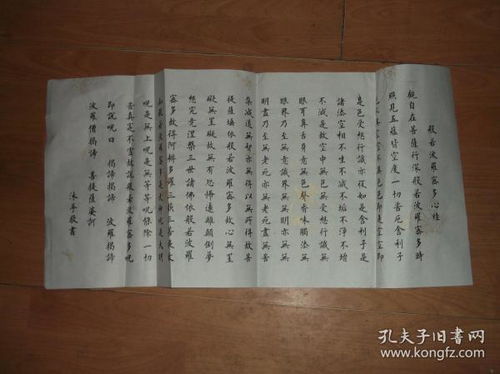 般若波羅蜜多心經
觀自在菩薩行深般若波羅蜜多時
照見五蘊皆空度一切苦厄舍利子
色不異空空不異色色即是空空即
是色受想行識亦復如是舍利子是
諸法空相不生不滅不垢不淨不增
不減是故空中無色無受想行識無
眼耳鼻舌身意無色聲香味觸法無
眼界乃至無意識界無無明亦無無
明盡乃至無老死亦無老死盡無苦
集滅道無智亦無得以無所得故菩
提薩埵依般若波羅蜜多故心無罣
礙無罣礙故無有恐怖遠離顛倒夢
想究竟涅槃三世諸佛依般若波羅
蜜多故得阿耨多羅三藐三菩提故
知般若波羅蜜多是大神呪是大明
呪是無上呪是無等等呪能除一切
苦真實不虛故說般若波羅蜜多呪
即說呪曰 揭諦揭諦 波羅揭諦
波羅僧揭諦 菩提薩婆訶
沐手敬書
孔夫子旧书网
www.kongfz.com